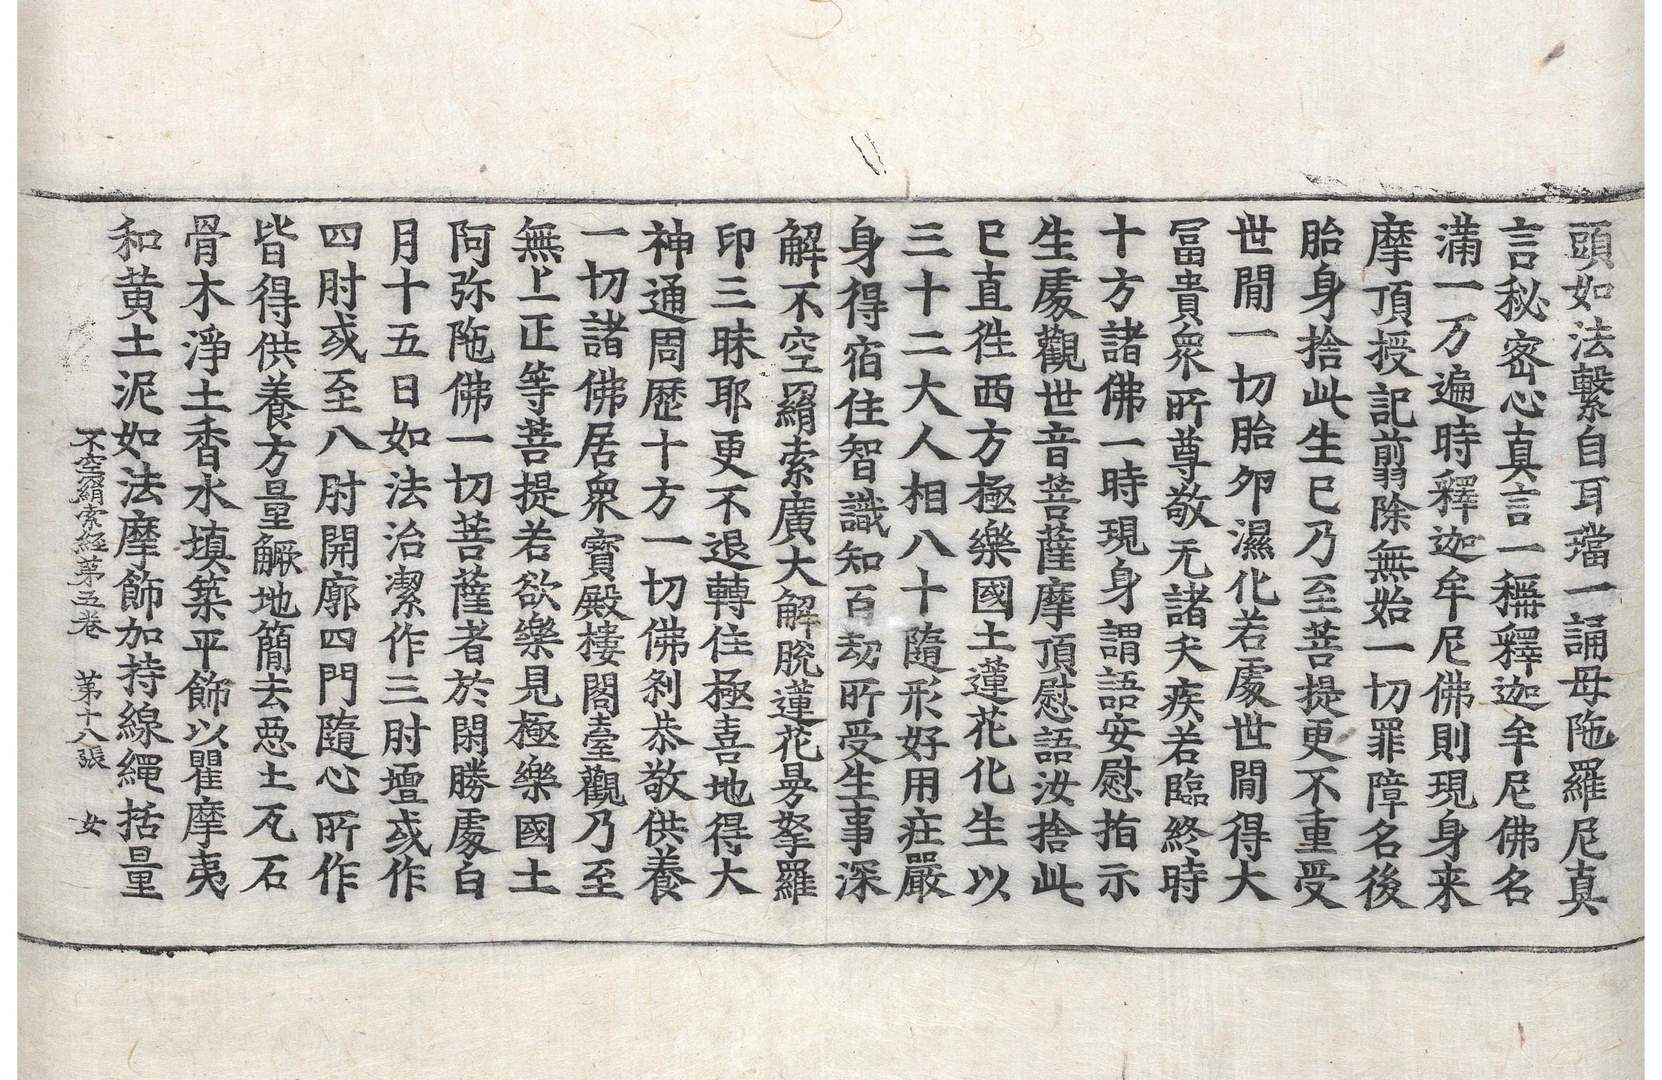 頭如法繫自耳璫一誦母陁羅尼真
言秘密心真言一稱釋迦牟尼佛名
滿一万遍時釋迦牟尼佛則現身来
摩頂授記翦除無始一切罪障名後
胎身捨此生已乃至菩提更不重受
世閒一切胎夘濕化若處世閒得大
冨貴衆所尊敬无諸夭疾若臨終時
十方諸佛一時現身謂語安慰指示
生處觀世音菩薩摩頂慰語汝捨此
已直徃西方極樂國土蓮花化生以
三十二大人相八十隨形好用庄嚴
身得宿住智識知百劫所受生事深
解不空羂索廣大解脫蓮花曼拏羅
印三昧耶更不退轉住極喜地得大
神通周歷十方一切佛刹恭敬供養
一切諸佛居衆寶殿樓閣臺觀乃至
無上正等菩提若欲樂見極樂國土
阿弥陁佛一切菩薩者於閑勝處白
月十五日如法治潔作三肘壇或作
四肘或至八肘開廓四門隨心所作
皆得供養方量觼地簡去惡土瓦石
骨木淨土香水填築平飾以瞿摩夷
和黃土泥如法摩飾加持線繩括量
不空羂索經第五卷 第十八張 女